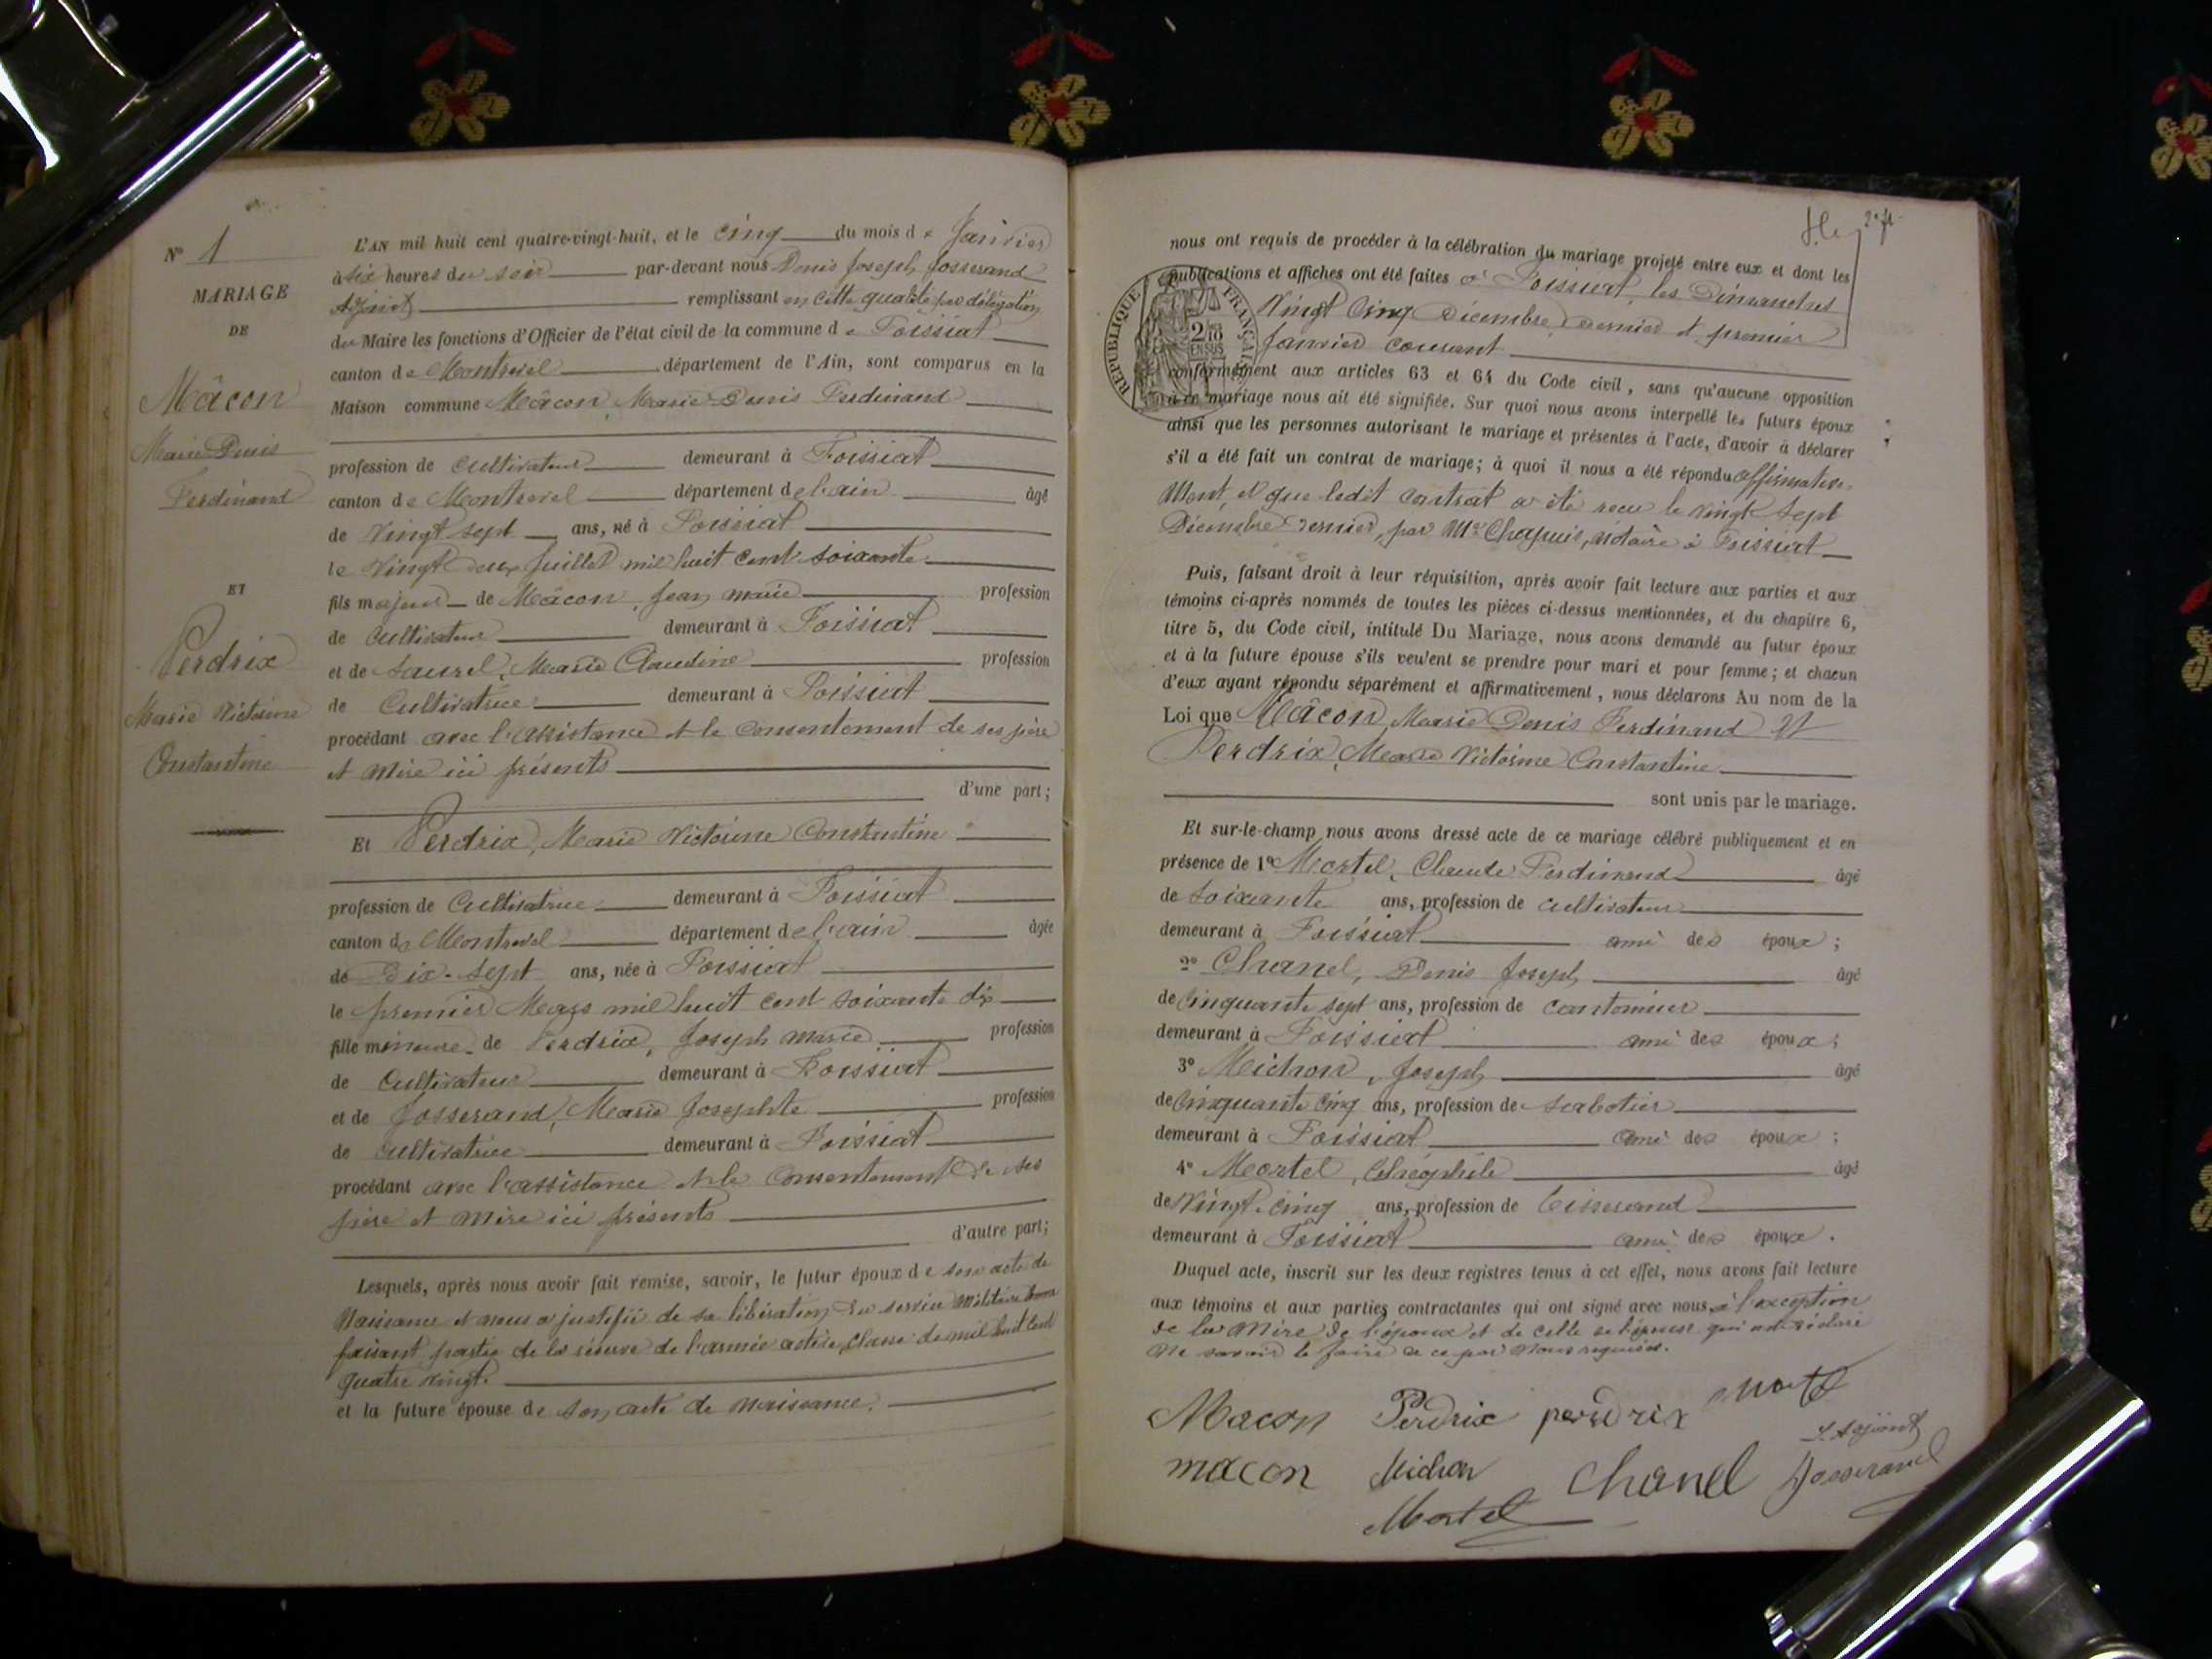 N° 1
MARIAGE
DE
Mâcon
Marie Denis
Ferdinand
ET
Perdrix
Marie Victorine
Constantine
L'AN mil huit cent quatre-vingt-huit, et le Cinq du mois de Janvier
à six heures du soir par-devant nous Denis Joseph Josserand
Adjoint remplissant en cette qualité par délégation
du Maire les fonctions d'Officier de l'état civil de la commune de Foissiat
canton de Montrevel département de l'Ain, sont comparus en la
Maison commune Mâcon, Marie Denis Ferdinand
profession de Cultivateur demeurant à Foissiat
canton de Montrevel département de l'ain âgé
de Vingt sept ans, né à Foissiat
le Vingt deux Juillet mil huit cent soixante
fils majeur de Mâcon, Jean marie profession
de Cultivateur demeurant à Foissiat
et de Laurel, Marie Claudine profession
de Cultivatrice demeurant à Foissiat
procédant avec l'assistance et le Consentement de ses père
et mère ici présents
d'une part;
Et Perdrix, Marie Victorine Constantine
profession de Cultivatrice demeurant à Foissiat
canton de Montrevel département de l'ain âgée
de Dix-sept ans, née à Foissiat
le premier Mars mil huit cent soixante dix
fille mineure de Perdrix, Joseph Marie profession
de Cultivateur demeurant à Foissiat
et de Josserand, Marie Josephte profession
de cultivatrice demeurant à Foissiat
procédant avec l'assistance et le Consentement de ses
père et mère ici présents
d'autre part;
Lesquels, après nous avoir fait remise, savoir, le futur époux de son acte de
Naissance et nous a justifié de sa libération du service Militaire comme
faisant partie de la réserve de l'armée active, classe de mil huit cent
quatre vingt.
et la future épouse de son acte de Naissance.
2e f.
nous ont requis de procéder à la célébration du mariage projeté entre eux et dont les
publications et affiches ont été faites à Foissiat, les Dimanches
Vingt Cinq Décembre Dernier et premier
Janvier courant
RÉPUBLIQUE FRANÇAISE
2/10 EN SUS
conformément aux articles 63 et 64 du Code civil, sans qu'aucune opposition
à ce mariage nous ait été signifiée. Sur quoi nous avons interpellé les futurs époux
ainsi que les personnes autorisant le mariage et présentes à l'acte, d'avoir à déclarer
s'il a été fait un contrat de mariage; à quoi il nous a été répondu affirmative-
Ment, et que ledit Contrat a été reçu le vingt sept
Décembre dernier, par Me Chapuis, notaire à Foissiat
Puis, faisant droit à leur réquisition, après avoir fait lecture aux parties et aux
témoins ci-après nommés de toutes les pièces ci-dessus mentionnées, et du chapitre 6,
titre 5, du Code civil, intitulé Du Mariage, nous avons demandé au futur époux
et à la future épouse s'ils veulent se prendre pour mari et pour femme; et chacun
d'eux ayant répondu séparément et affirmativement, nous déclarons Au nom de la
Loi que Mâcon, Marie Denis Ferdinand Et
Perdrix, Marie Victorine Constantine
sont unis par le mariage.
Et sur-le-champ nous avons dressé acte de ce mariage célébré publiquement et en
présence de 1° Mortel, Claude Ferdinand âgé
de Soixante ans, profession de cultivateur
demeurant à Foissiat ami des époux;
2° Chanel, Denis Joseph âgé
de Cinquante sept ans, profession de cantonnier
demeurant à Foissiat ami des époux;
3° Michon, Joseph âgé
de Cinquante Cinq ans, profession de sabotier
demeurant à Foissiat ami des époux;
4° Mortel, Théophile âgé
de Vingt-Cinq ans, profession de Tisserand
demeurant à Foissiat ami des époux.
Duquel acte, inscrit sur les deux registres tenus à cet effet, nous avons fait lecture
aux témoins et aux parties contractantes qui ont signé avec nous, à l'exception
de la Mère de l'époux et de celle de l'épouse qui ont déclaré
Ne savoir le faire de ce par Nous requises.
Macon Perdrix perdrix Mortel
L'adjoint
macon Michon Chanel Josserand
Mortel